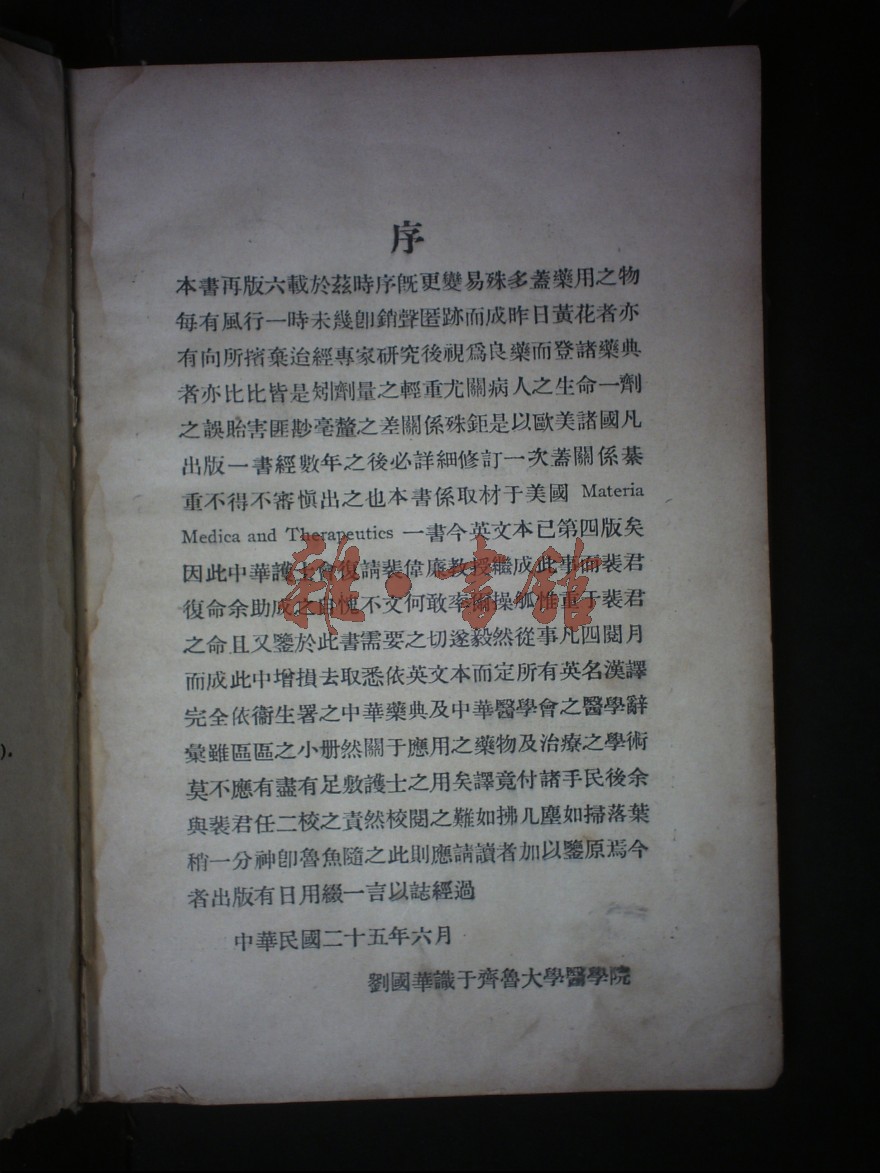 序
本書再版六載於茲時序旣更變易殊多蓋藥用之物
每有風行一時未幾卽銷聲匿跡而成昨日黃花者亦
有向所擯棄迨經專家硏究後視爲良藥而登諸藥典
者亦比比皆是矧劑量之輕重尤關病人之生命一劑
之誤貽害匪尠毫釐之差關係殊鉅是以歐美諸國凡
出版一書經數年之後必詳細修訂一次蓋關係綦
重不得不審愼出之也本書係取材于美國 Materia
Medica and Therapeutics 一書今英文本已第四版矣
因此中華護士會復請裴偉廉教授繼成此事而裴君
復命余助成之自愧不文何敢率爾操觚惟重于裴君
之命且又鑒於此書需要之切遂毅然從事凡四閱月
而成此中增損去取悉依英文本而定所有英名漢譯
完全依衞生署之中華藥典及中華醫學會之醫學辭
彙雖區區之小册然關于應用之藥物及治療之學術
莫不應有盡有足敷護士之用矣譯竟付諸手民後余
與裴君任二校之責然校閱之難如拂几塵如掃落葉
稍一分神卽魯魚隨之此則應請讀者加以鑒原焉今
者出版有日用綴一言以誌經過
中華民國二十五年六月
劉國華識于齊魯大學醫學院
).
雜·書館